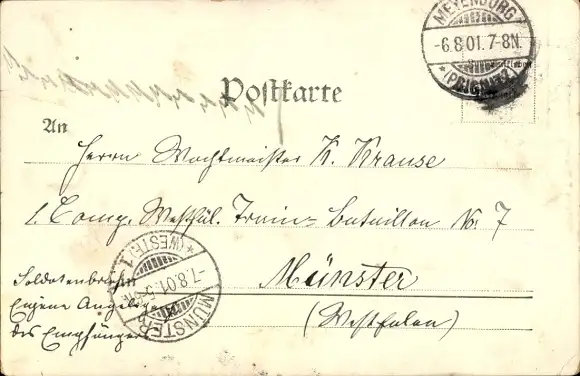 MEYENBURG
-6.8.01.7-8N.
*(PRIGNITZ)*
Postkarte
An
Herrn Wachtmeister K. Krause
1. Comp. Westfäl. Train-Bataillon No. 7
Münster
(Westfalen)
Soldatenbrief
Eigene Angelegen
des Empfängers
MÜNSTER
*(WESTF.)1.
-7.8.01.